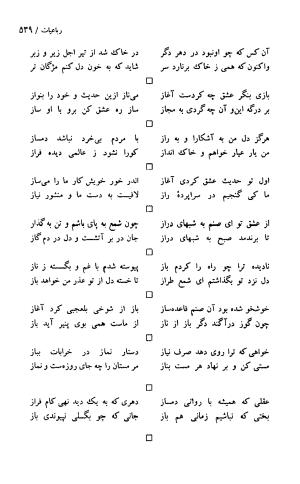 رباعیات / ۵۳۹
آن کس که چو اونبود در دهر دگر در خاك شد از تیر اجل زیر و زبر
واکنون که همی ز خاك برنارد سر شاید که به خون دل کنم مژگان تر
بازی بنگر عشق چه کردست آغاز می‌ناز ازین حدیث و خود را بنواز
بر درگه این‌و آن چه گردی به مجاز ساز ره عشق کن برو با او ساز
هرگز دل من به آشکارا و به راز با مردم بی‌خرد نباشد دمساز
من یار عیار خواهم و خاك انداز کورا نشود ز عالمی دیده فراز
اول تو حدیث عشق کردی آغاز اندر خور خویش کار ما را می‌ساز
ما کی گنجیم در سراپردهٔ راز لافیست به دست ما و منشور نیاز
از عشق تو ای صنم به شبهای دراز چون شمع به پای باشم و تن به‌گداز
تا برندمد صبح به شبهای دراز جان در بر آتشست و دل در دم گاز
نادیده ترا چو راه را کردم باز پیوسته شدم با غم و بگسسته ز ناز
دل نزد تو بگذاشتم ای شمع طراز تا خسته دل از تو عذر من خواهد باز
خوشخو شده بود آن صنم قاعده‌ساز باز از شوخی بلعجبی کرد آغاز
چون گوز درآگند دگر باز از ناز از ماست همی بوی پنیر آید باز
خواهی که ترا روی دهد صرف نیاز دستار نماز در خرابات بباز
مستی کن و بر نهاد هر مست بناز مر مستان را چه جای روزه‌ست و نماز
عقلی که همیشه با روانی دمساز دهری که به یك دید نهی کام فراز
بختی که نباشیم زمانی هم باز جانی که چو بگسلی نپیوندی باز